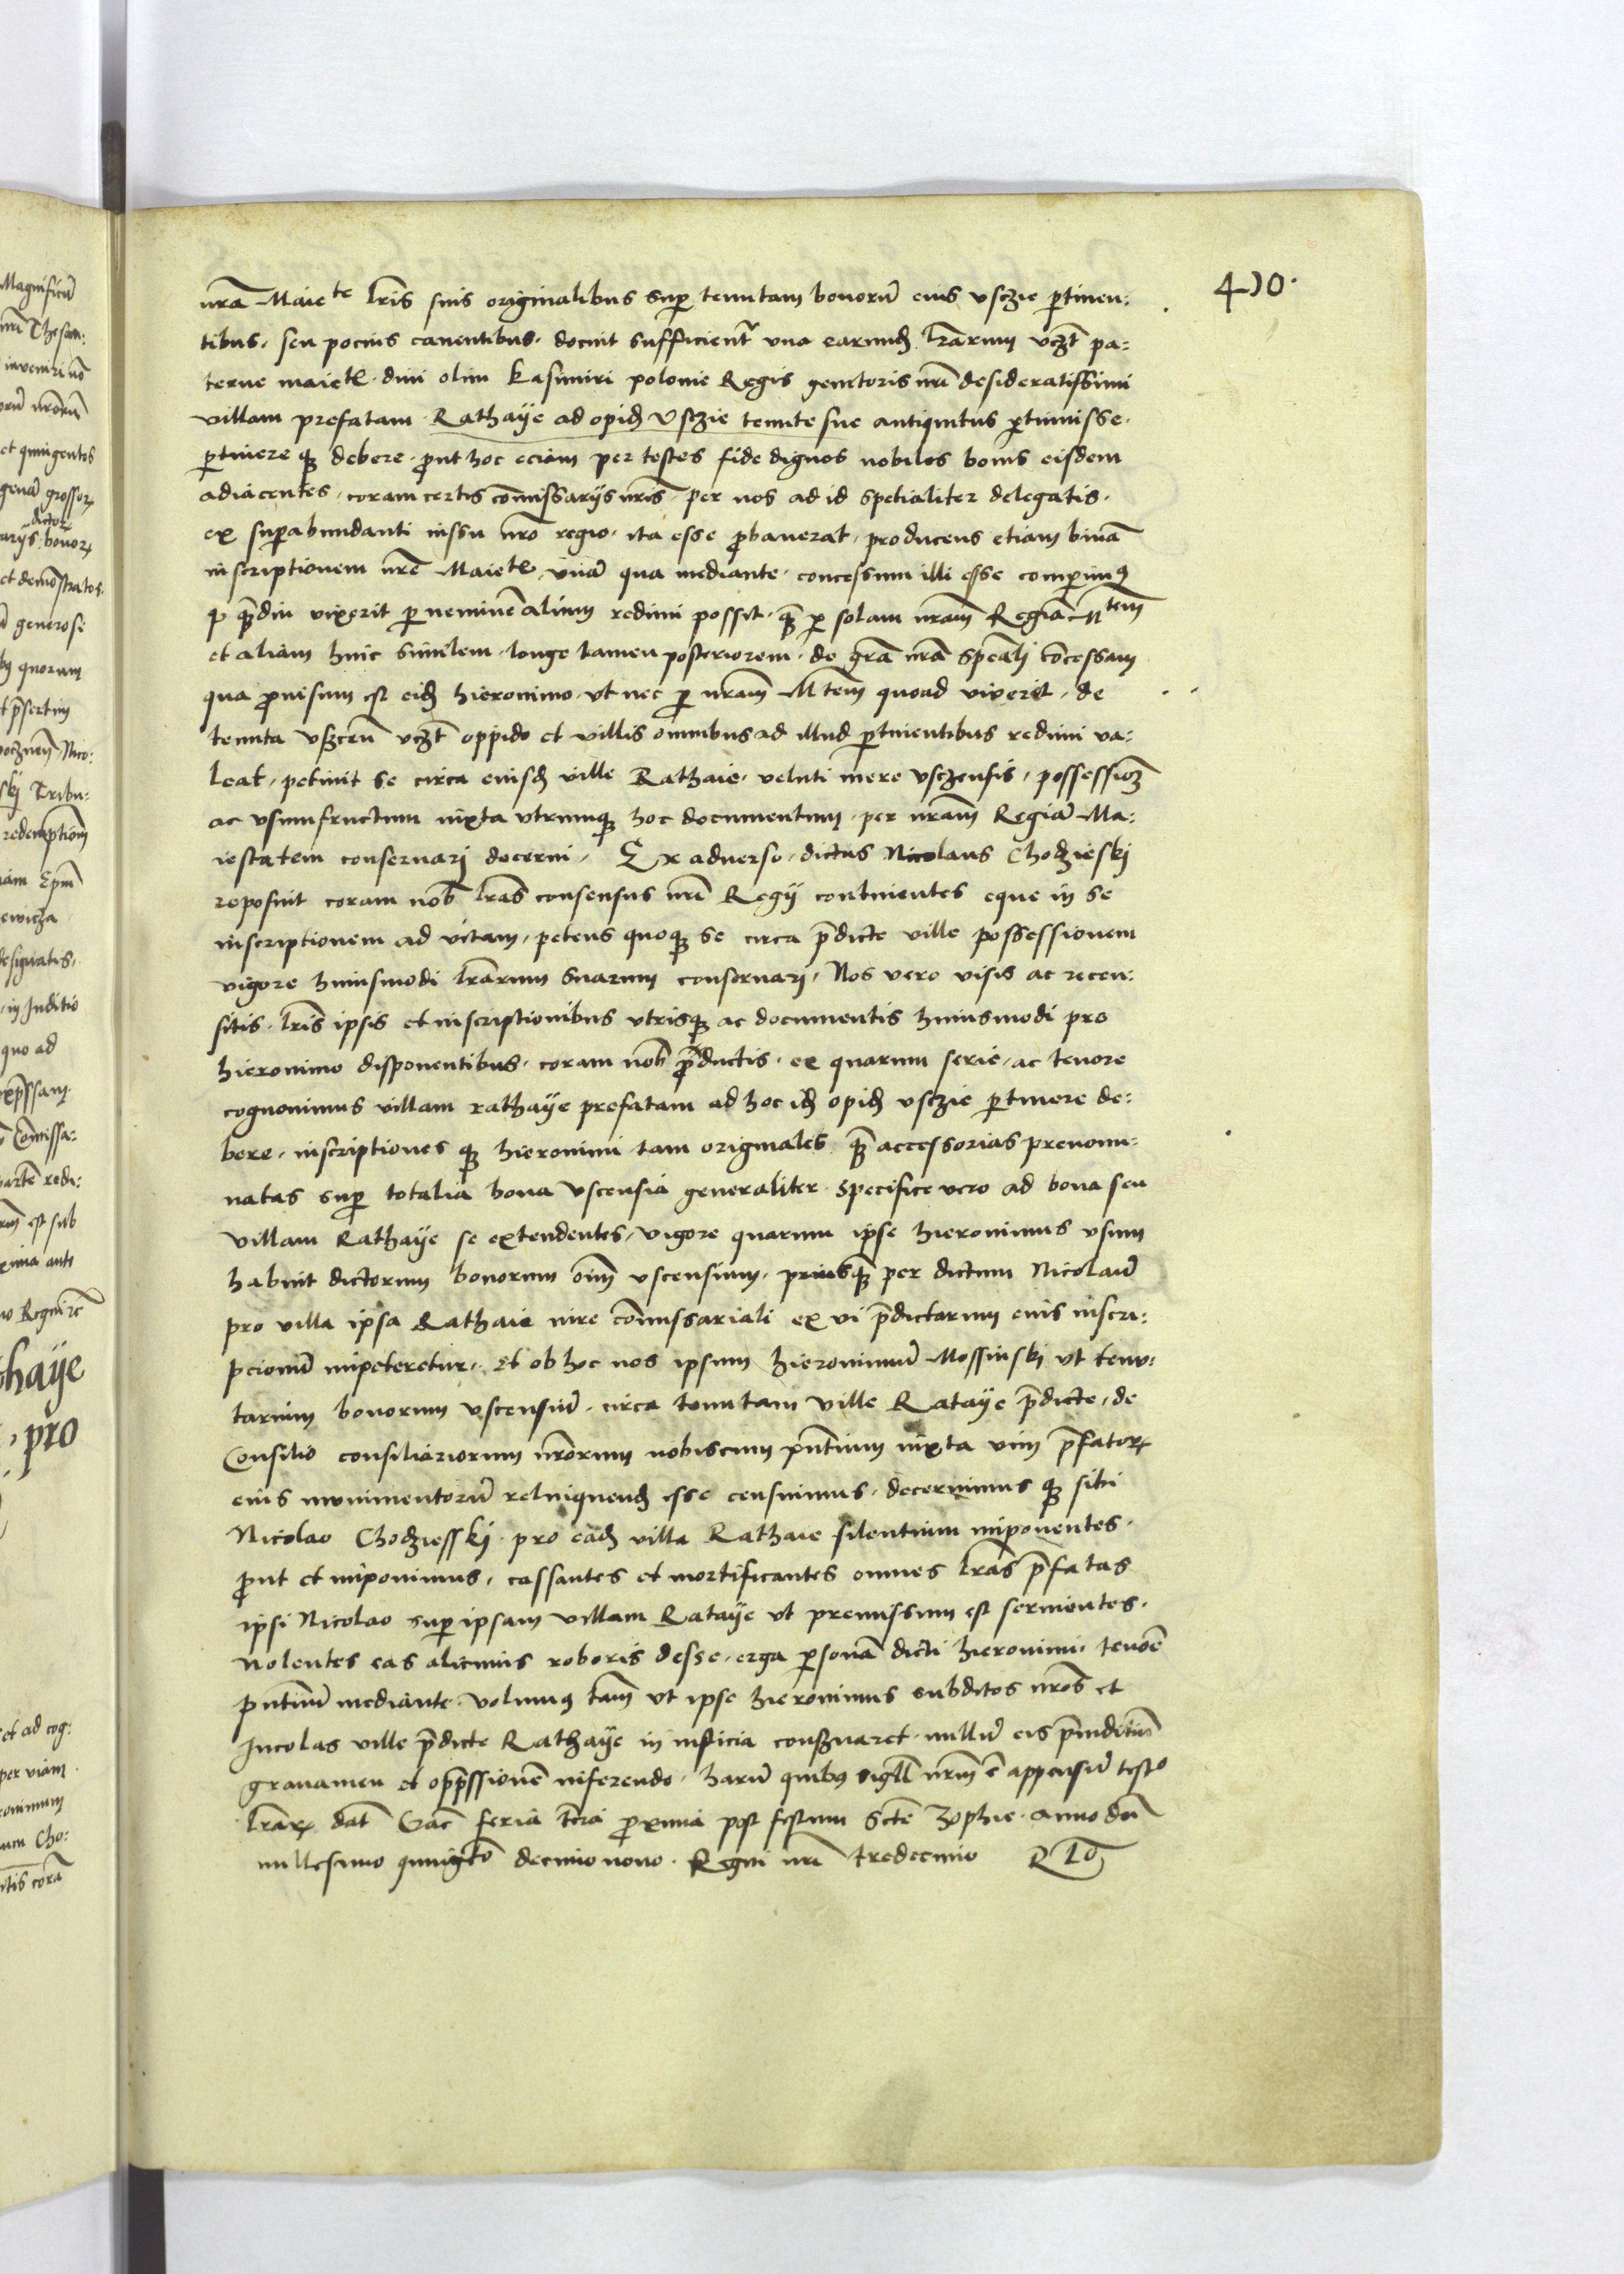 410.
nrã Maiete lris suis originalibus super tenutam bonorũ eius uszie pertinen:
tibus, seu pocius cauentibus, docuit sufficient una earund lrarum uczt pa:
terne maiete, diui olim kasimiri polonie Regis genitoris nri desideratissimi
villam prefatam Rathaÿe ad opid Uszie tenute sue antiquitus pertinuisse.
pertinere q debere, prout hoc eciam per testes fide dignos nobiles bonis eisdem
adiacentes, coram certis comissarijs nris, per nos ad id spetialiter delegatis,
ex superabundanti iussu nro regio, ita esse probauerat, producens etiam binã
inscriptionem nre Maiete, unã qua mediante concessum illi esse comperimus
q quãdiu vixerit per neminẽ alium redimi possit, quã per solam nram Regiã Mtem
et aliam huic similem, longe tamen posteriorem, de grã nrã speãli cõcessam
qua prouisum est eid hieronimo, ut nec per nram Mtem quoad vixerit, de
tenuta uszceñ uczt oppido et villis omnibus ad illud pertinentibus redimi ua:
leat, petiuit se circa eiusd ville Rathaie, veluti mere usczensis, possession
ac usumfructum iuxta utrumq hoc documentum, per nram Regiã Ma:
iestatem conseruarj decerni, Ex aduerso, dictus Nicolaus Chodzieskj
reposuit coram nob lras consensus nri Regij continentes eque in se
inscriptionem ad vitam, petens quoq se circa pdicte ville possessionem
vigore huiusmodi lrarum suarum conseruarj, Nos vero visis ac recen:
sitis lris ipsis et inscriptionibus utrisq ac documentis huiusmodi pro
hieronimo disponentibus, coram nob productis, ex quarum serie, ac tenore
cognouimus villam rathaÿe prefatam ad hoc id opid uszie pertinere de:
bere, inscriptiones q hieronimi tam originales quã accessorias prenomi:
natas super totalia bona uscensia generaliter specifice vero ad bona seu
villam Rathaÿe se extendentes, vigore quarum ipse hieronimus usum
habuit dictorum bonorum oim uscensium, priusq per dictum Nicolaũ
pro villa ipsa Rathaie iure comissariali ex vi pdictarum eius inscri:
pcionũ impeteretur, Et ob hoc nos ipsum hieronimũ Mossinskj ut tenu:
tarium bonorum uscensiũ, circa tenutam ville Rataÿe pdicte, de
Consilio consiliariorum nrorum nobiscum pntium iuxta vim pfator
eius munimentorũ relinquend esse censuimus, decernimus q sibi
Nicolao Chodziesskj pro ead villa Rathaie silentium imponentes,
prout et imponimus, cassantes et mortificantes omnes lras pfatas
ipsi Nicolao super ipsam villam Rataÿe ut premissum est seruientes,
Nolentes eas alicuius roboris Eesse, erga personã dicti hieronimi, tenoẽ
pntium mediante, volumus tam ut ipse hieronimus subditos nros et
Incolas ville pdicte Rathaÿe in iusticia conseruaret, nullũ eis piuditium
grauamen et oppressionẽ inferendo, harũ quibus sigill nrm ẽ appensũ testo
lrar, dat Crac feria tercia proxima post festum Scte Zophie, anno dni
millesimo quingto decimo nono, Regni nri tredecimo